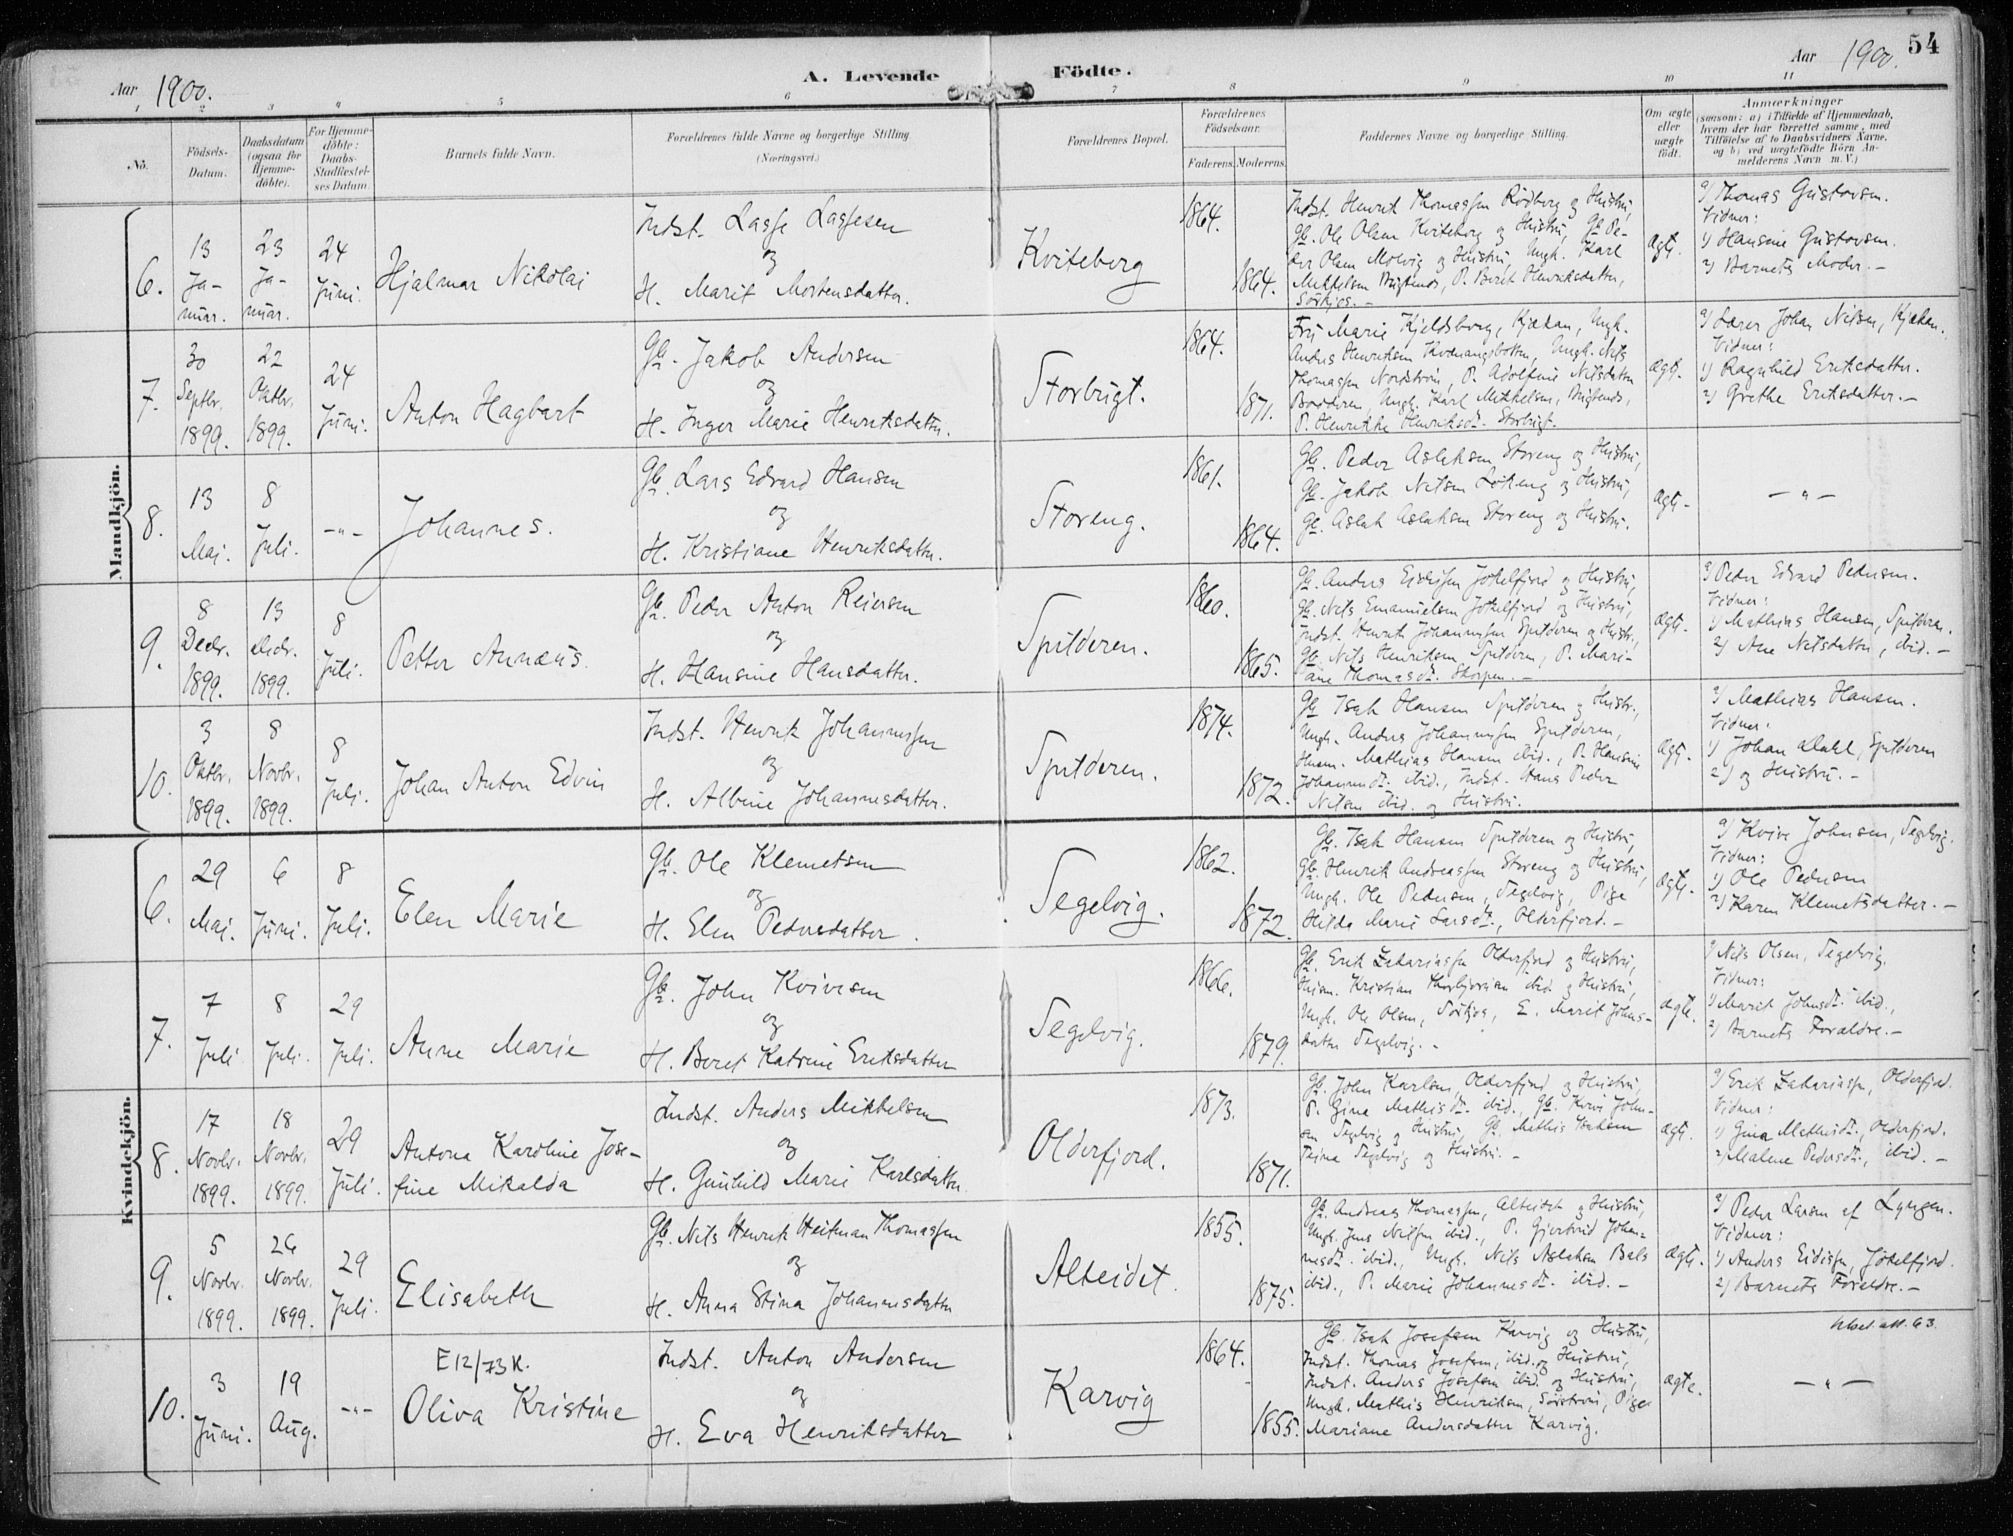 54
Aar 1900.
A. Levende Födte.
Aar 1900.
1 2 3 4 5 6 7 8 9 10 11
No.
Födsels-
Datum.
Daabsdatum
(ogsaa for
Hjemme-
döbte).
For Hjemme-
döbte:
Daabs-
Stadfæstel-
ses Datum.
Barnets fulde Navn.
Forældrenes fulde Navne og borgerlige Stilling.
(Næringsvei.)
Forældrenes Bopæl.
Forældrenes
Födselsaar.
Faderens. Moderens.
Faddernes Navne og borgerlige Stilling.
Om ægte
eller
uægte
födt.
Anmærkninger
(saasom: a) i Tilfælde af Hjemmedaab,
hvem der har forrettet samme, med
Tilföielse af to Daabsvidners Navne,
og b) ved uægtefödte Börn An-
melderens Navn m. V.)
Mandkjön.
6.
13
Ja-
nuar.
23
Ja-
nuar.
24
Juni.
Hjalmar Nikolai
Indst. Lasse Lassesen
og
H. Marit Mortensdatter.
Kviteberg
1864.
1864.
Indst. Henrik Thomassen Rödberg og Hustru,
Gb. Ole Olsen Kviteberg og Hustru, Gb. Pe-
der Olsen Molvig og Hustru, Ungk. Karl
Mikkelsen Bugtends, P. Berit Henriksdatter,
Sörkjos.-
ægt.
a) Thomas Gustavsen.
Vidner:
1) Hansine Gustavsen.
2) Barnets Moder.-
7.
30
Septbr.
1899.
22
Oktbr.
1899.
24
Juni.
Anton Hagbart
Gb. Jakob Andersen
og
H. Inger Marie Henriksdatter.
Storbugt.
1864.
1871.
Frk Marie Kjeldsberg, Kjækan, Ungk.
Anders Henriksen Kvænangsbotten, Ungk. Nils
Thomassen Nordströn, P. Adolfine Nilsdatter
Ungk. Karl Mikkelsen, Bugtends,
P. Henrikke Henriksdt. Storbugt.
ægt.
a) Lærer Johan Nilsen, Kjækan.
Vidner:
1) Ragnhild Eriksdatter.
2) Grethe Eriksdatter.-
8.
13
Mai.
8
Juli.
-"-
Johannes.
Gb. Lars Edvard Hansen
og
H. Kristiane Henriksdatter.
Storeng.
1861.
1864.
Gb. Peder Aslaksen Storeng og Hustru,
Gb. Jakob Nilsen Lökeng og Hustru,
Gb. Aslak Aslaksen Storeng og Hustru.
ægt.
-"-
9.
8
Decbr.
1899.
13
Decbr.
1899.
8
Juli.
Petter Annæus.
Gb. Peder Anton Reiersen
og
H. Hansine Hansdatter.
Spilderen.
1860.
1865.
Gb. Anders Eidissen Jökelfjord og Hustru,
Gb. Nils Emanuelsen Jökelfjord og Hustru,
Indst. Henrik Johannessen Spilderen og Hustr.,
Gb. Nils Henriksen Spilderen, P. Mari-
ane Thomasdt. Skorpen.-
ægt.
a) Peder Edvard Pedersen.
Vidner:
1) Mathias Hansen, Spilderen.
2) Ane Nilsdatter, ibid.-
10.
3
Oktbr.
1899.
8
Novbr.
1899.
8
Juli.
Johan Anton Edvin
Indst. Henrik Johannessen
og
H. Albine Johannesdatter.
Spilderen.
1874.
1872.
Gb. Isak Hansen Spilderen og Hustr.,
Ungk. Anders Johannessen Spilderen,
Husm. Mathias Hansen ibid., P. Hansine
Johannesdt. ibid., Indst. Hans Peder
Nilsen ibid. og Hustru.
ægt.
a) Mathias Hansen.
Vidner:
1) Johan Dahl, Spilderen
2) og Hustru.-
Kvindekjön.
6.
29
Mai.
6
Juni.
8
Juli.
Elen Marie
Gb. Ole Klemetsen
og
H. Elen Pedersdatter.
Segelvig.
1862.
1872.
Gb. Isak Hansen Spilderen og Hustru,
Gb. Henrik Andreassen Storeng og Hustru,
Ungk. Ole Pedersen, Segelvig, Pige
Hilda Marie Larsdt., Olderfjord.-
ægte.
a) Kvive Johnsen, Segelvig.
Vidner:
1) Ole Pedersen
2) Karen Klemetsdatter.-
7.
7
Juli
8
Juli.
29
Juli.
Anne Marie
Gb. John Kvivesen
og
H. Beret Katrine Eriksdatter
Segelvig.
1866.
1879.
Gb. Erik Zakariassen Olderfjord og Hustru,
Husm. Kristian Thorbjörnsen ibid. og Hustru,
Ungk. Ole Olsen, Sörkjos, E. Marit Johns-
datter Segelvig.-
ægte.
a) Nils Olsen, Segelvig.
Vidner:
1) Marit Johnsdt. ibid.,
2) Barnets Forældre.-
8.
17
Novbr.
1899.
18
Novbr.
1899.
29
Juli.
Antona Karoline Jose-
fine Mikalda
Indst. Anders Mikkelsen
og
H. Gunhild Marie Karlsdatter
Olderfjord.
1873.
1871.
Gb. John Karlsen, Olderfjord og Hustru,
P. Gina Mathisdt. ibid., Gb. Kvivi John-
sen Segelvig og Hustru, Gb. Mathis Isaksen
Segelvig og Hustru.-
ægt.
a) Erik Zakariassen, Olderfjord.
Vidner:
1) Gina Mathisdt., Olderfjord.
2) Malene Pedersdt., ibid.-
9.
5
Novbr.
1899.
26
Novbr.
1899.
29
Juli.
Elisabeth
Gb. Nils Henrik Heitman Thomassen
og
H. Anna Stina Johannesdatter
Alteidet.
1855.
1875.
Gb. Andreas Thomassen, Alteidet og Hustru,
Ungk. Jens Nilsen ibid., P. Gjertrud Johan-
nesdt. ibid., Ungk. Nils Aslaksen Bals
ibid., P. Marie Johannesdt. ibid.-
ægte.
a) Peder Larsen af Lyngen.
Vidner:
1) Anders Eidissen, Jökelfjord.
2) Barnets Forældre.-
10.
3
Juni.
19
Aug.
-"-
E12/73 K.
Oliva Kristine
Indst. Anton Andersen
og
H. Eva Henriksdatter
Karvig
1864.
1855.
Gb. Isak Josefsen Karvig og Hustru,
Indst. Thomas Josefsen, ibid. og Hustru,
Indst. Anders Josefsen ibid. og Hustru,
Ungk. Mathis Henriksen, Sörströn, Pige
Mariane Andersdatter Karvig.
ægte.
att. 63.
-"-